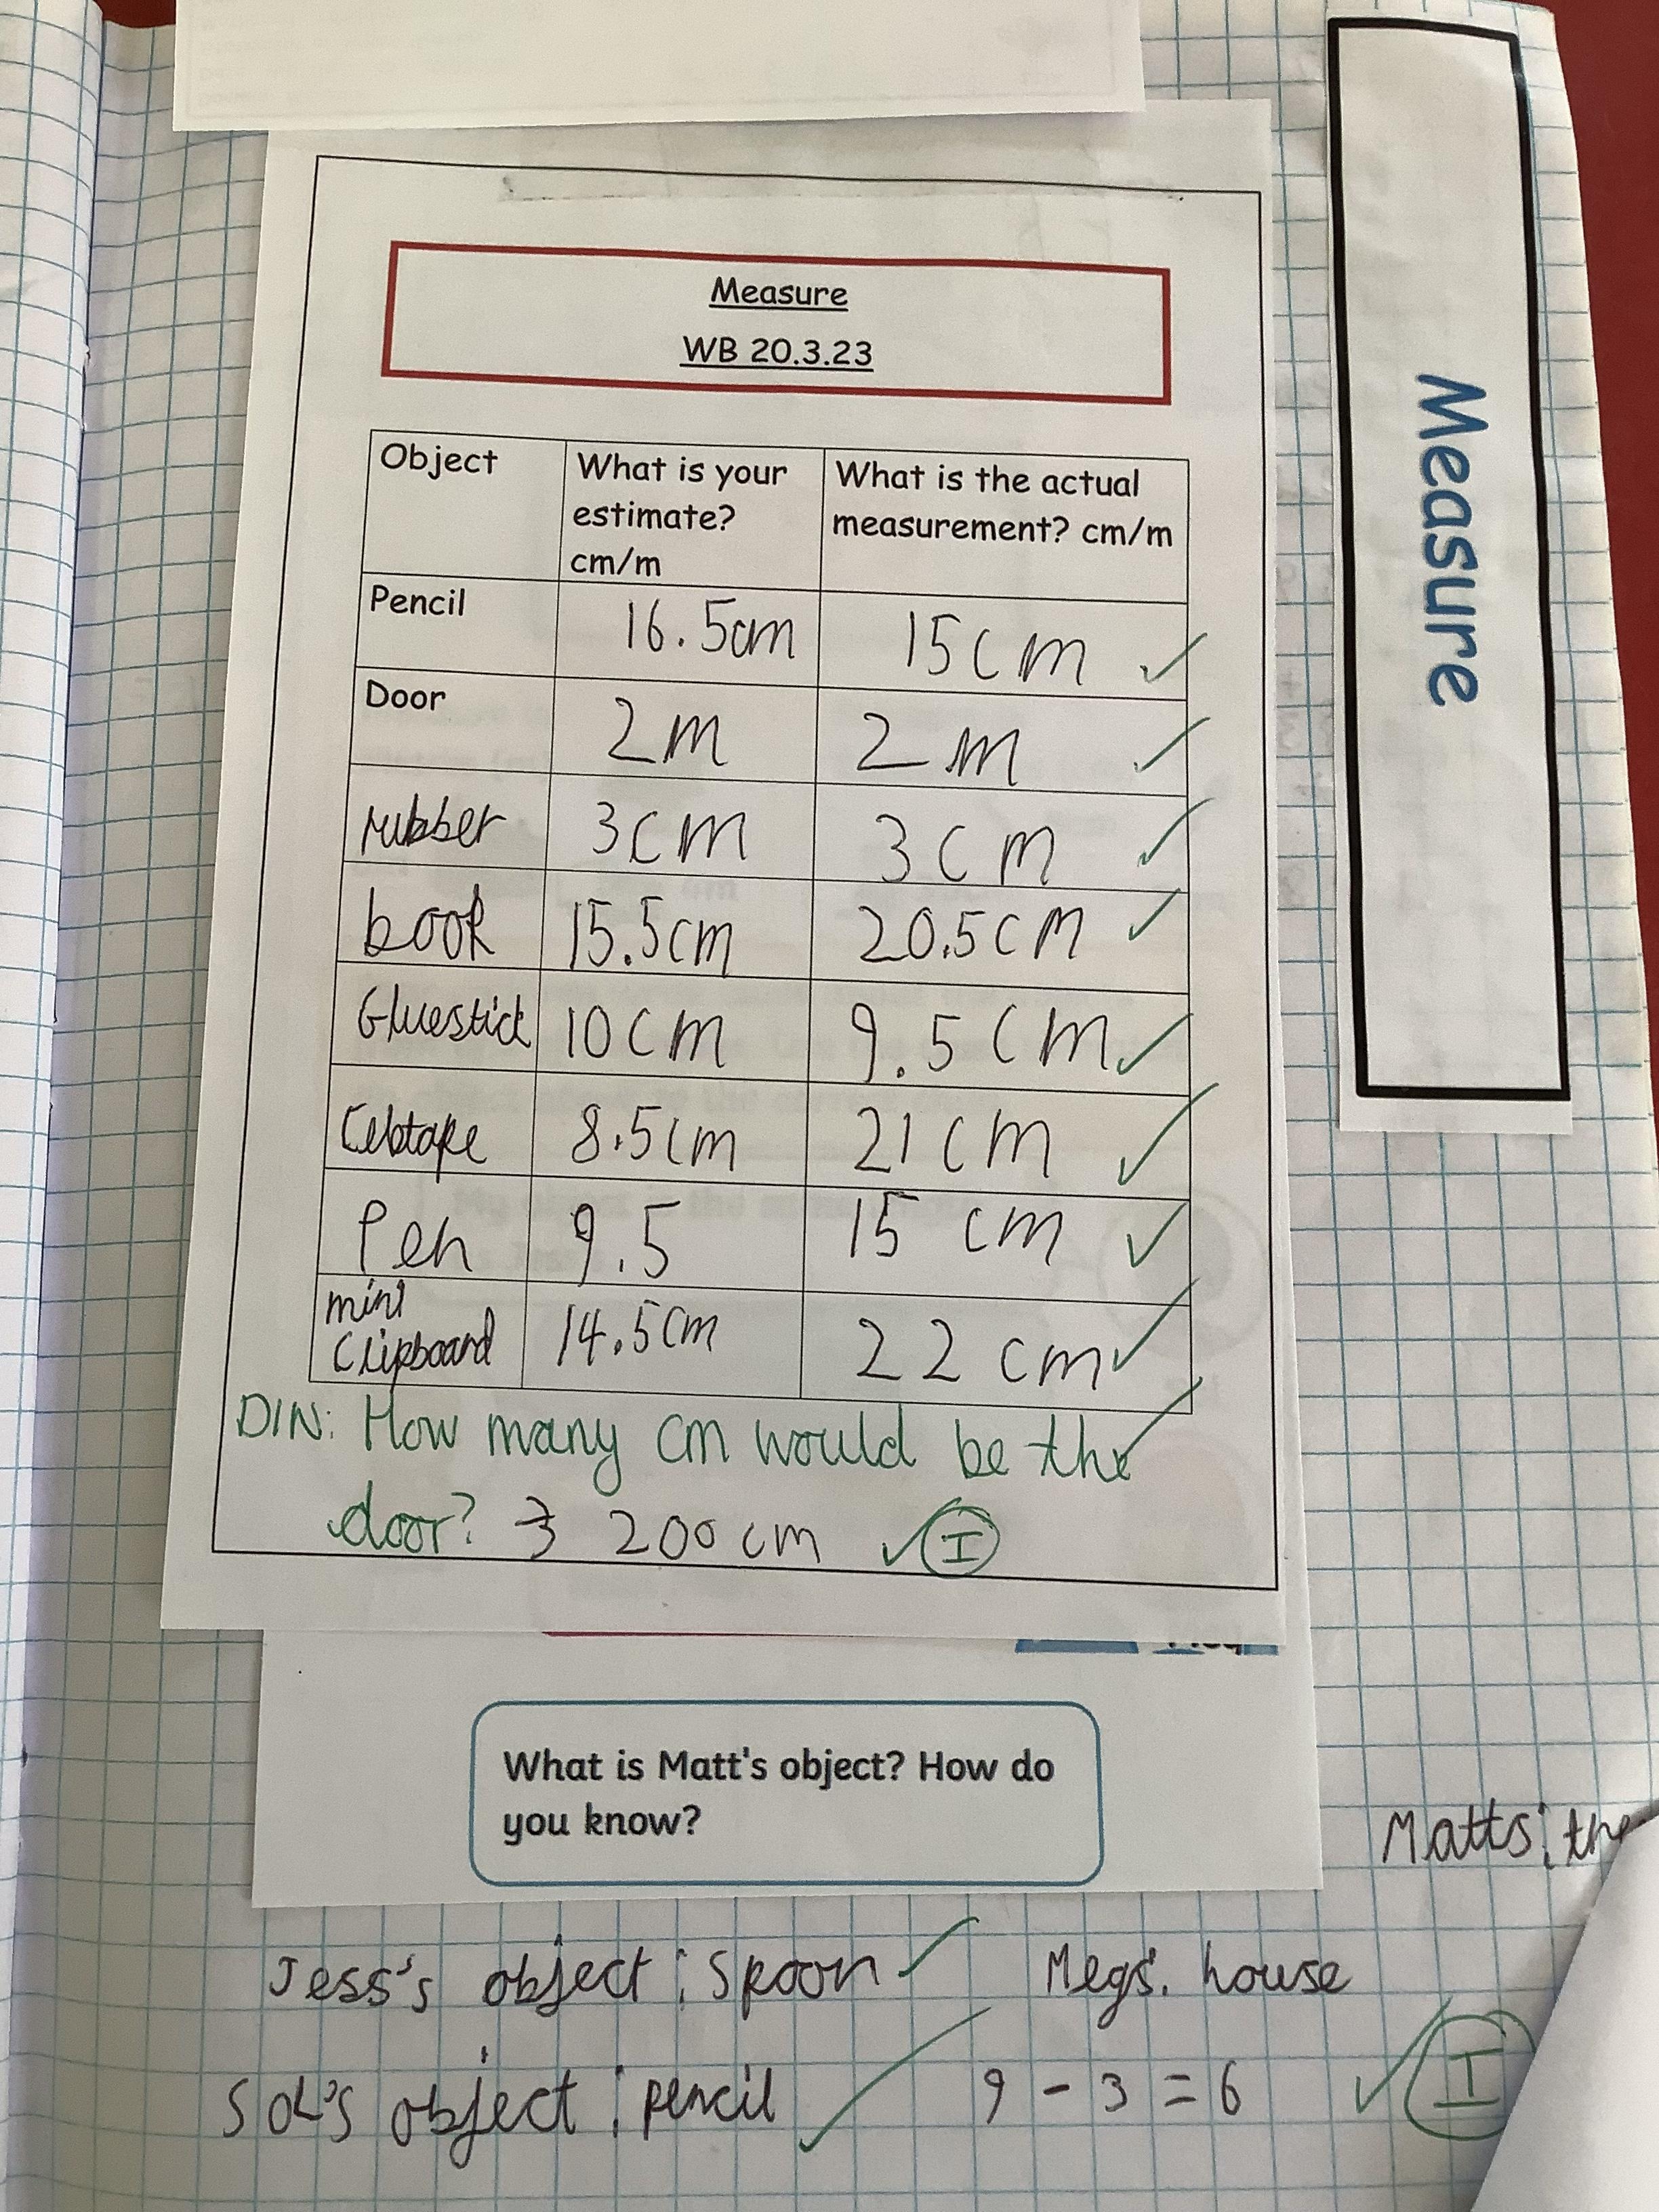 Measure
WB 20.3.23
Measure
Object What is your estimate? cm/m What is the actual measurement? cm/m
Pencil 16.5cm 15cm
Door 2m 2m
rubber 3cm 3cm
book 15.5cm 20.5cm
Gluestick 10cm 9.5cm
Celotape 8.5cm 21cm
Pen 9.5 15 cm
mini
Clipboard 14.5cm 22 cm
DIN: How many cm would be the
door? → 200 cm I
What is Matt's object? How do
you know?
Matts: the
Jess's object: Spoon Megs. house
SoL's object: pencil 9 - 3 = 6 I